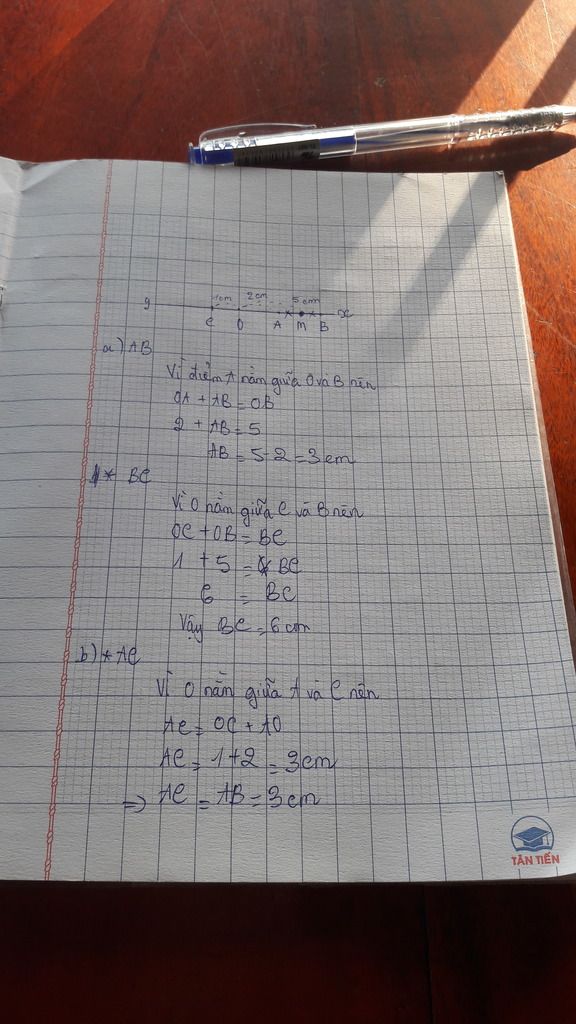 1cm 2cm 5cm
y C O A M B x
a) AB
Vì điểm A nằm giữa O và B nên
OA + AB = OB
2 + AB = 5
AB = 5-2 = 3cm
* BC
Vì O nằm giữa C và B nên
OC + OB = BC
1 + 5 = BC
6 = BC
Vậy BC = 6cm
b) * AC
Vì O nằm giữa A và C nên
AC = OC + AO
AC = 1+2 = 3cm
=> AC = AB = 3cm
TÂN TIẾN